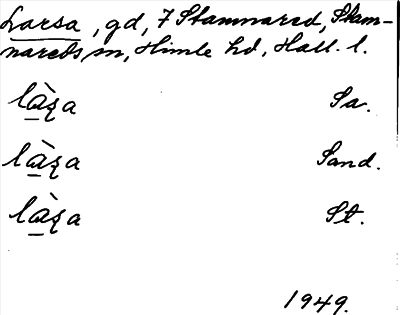 Larsa, gd, 7 Stamnared, Stam-
nareds sn, Himle hd, Hall. l.
là̱ʂa Sa.
là̱ʂa Sand.
là̱ʂa St.
1949.